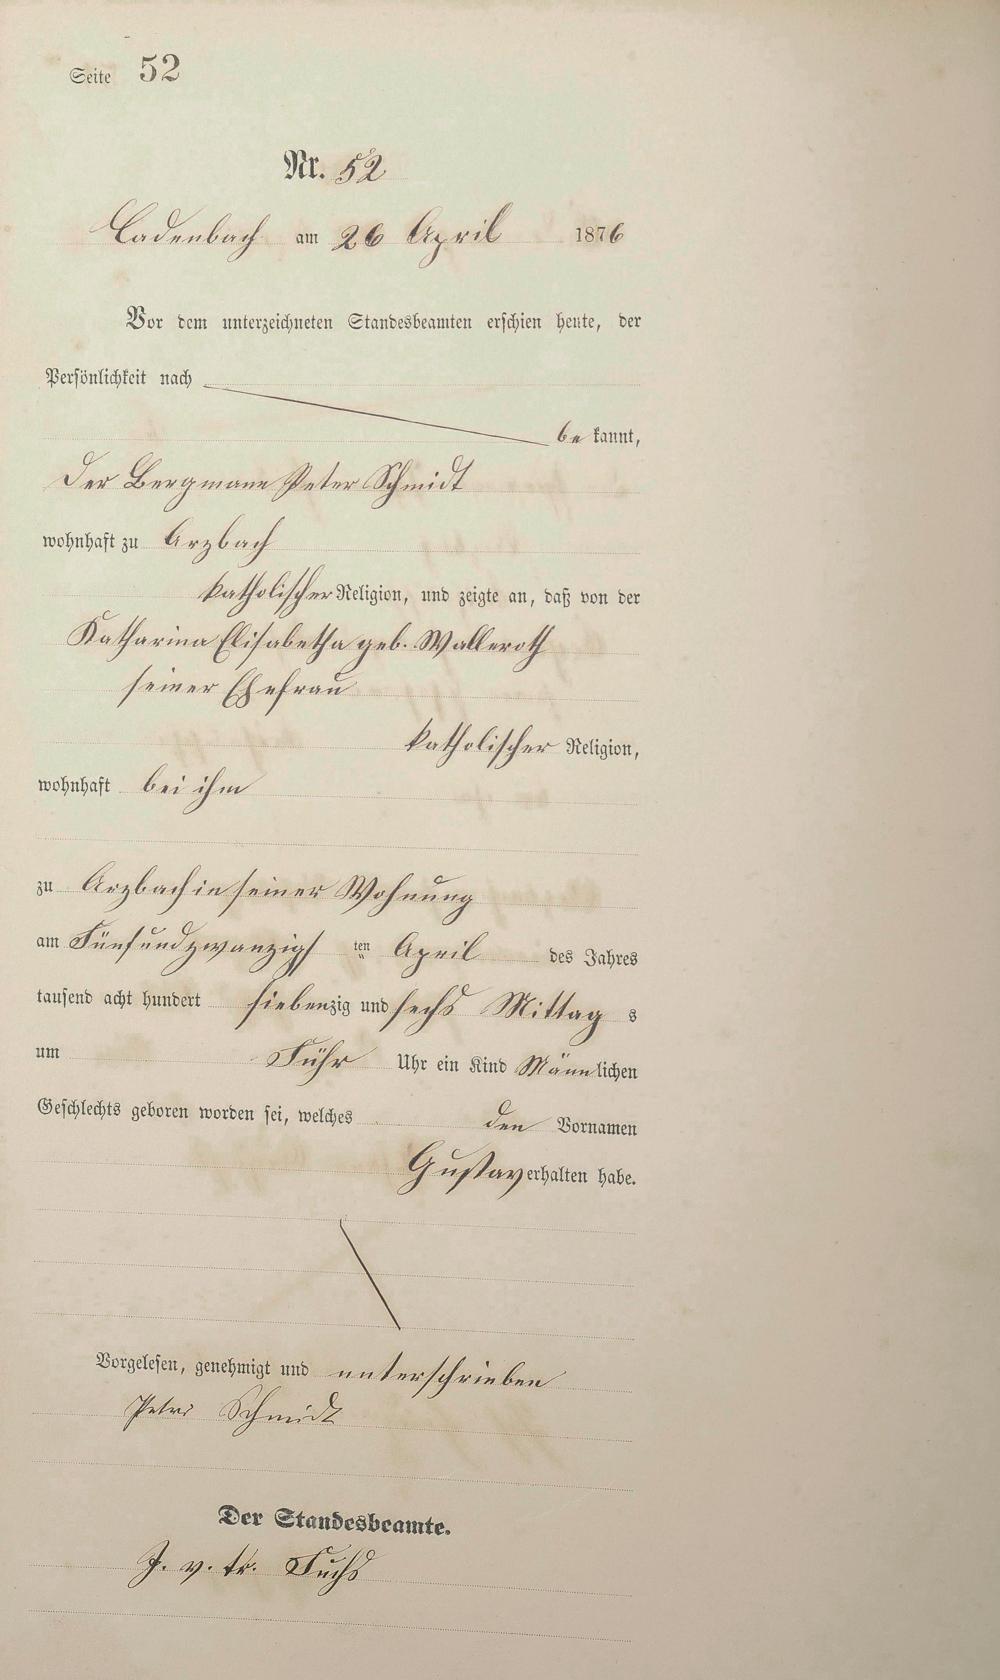 Seite 52
Nr. 52
Cadenbach am 26 April 1876
Vor dem unterzeichneten Standesbeamten erschien heute, der
Persönlichkeit nach
be kannt,
der Bergmann Peter Schmidt
wohnhaft zu Arzbach
katholischer Religion, und zeigte an, daß von der
Katharina Elisabetha geb. Walleroth
seiner Ehefrau
katholischer Religion,
wohnhaft bei ihm
zu Arzbach in seiner Wohnung
am Fünfundzwanzigs ten April des Jahres
tausend acht hundert siebenzig und sechs Mittag s
um Uhr ein Kind Männlichen
Geschlechts geboren worden sei, welches den Vornamen
Gustav erhalten habe.
Vorgelesen, genehmigt und unterschrieben
Peter Schmidt
Der Standesbeamte.
Fuchs